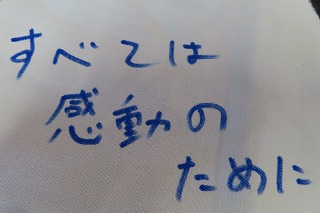 すべては
感動の
ために